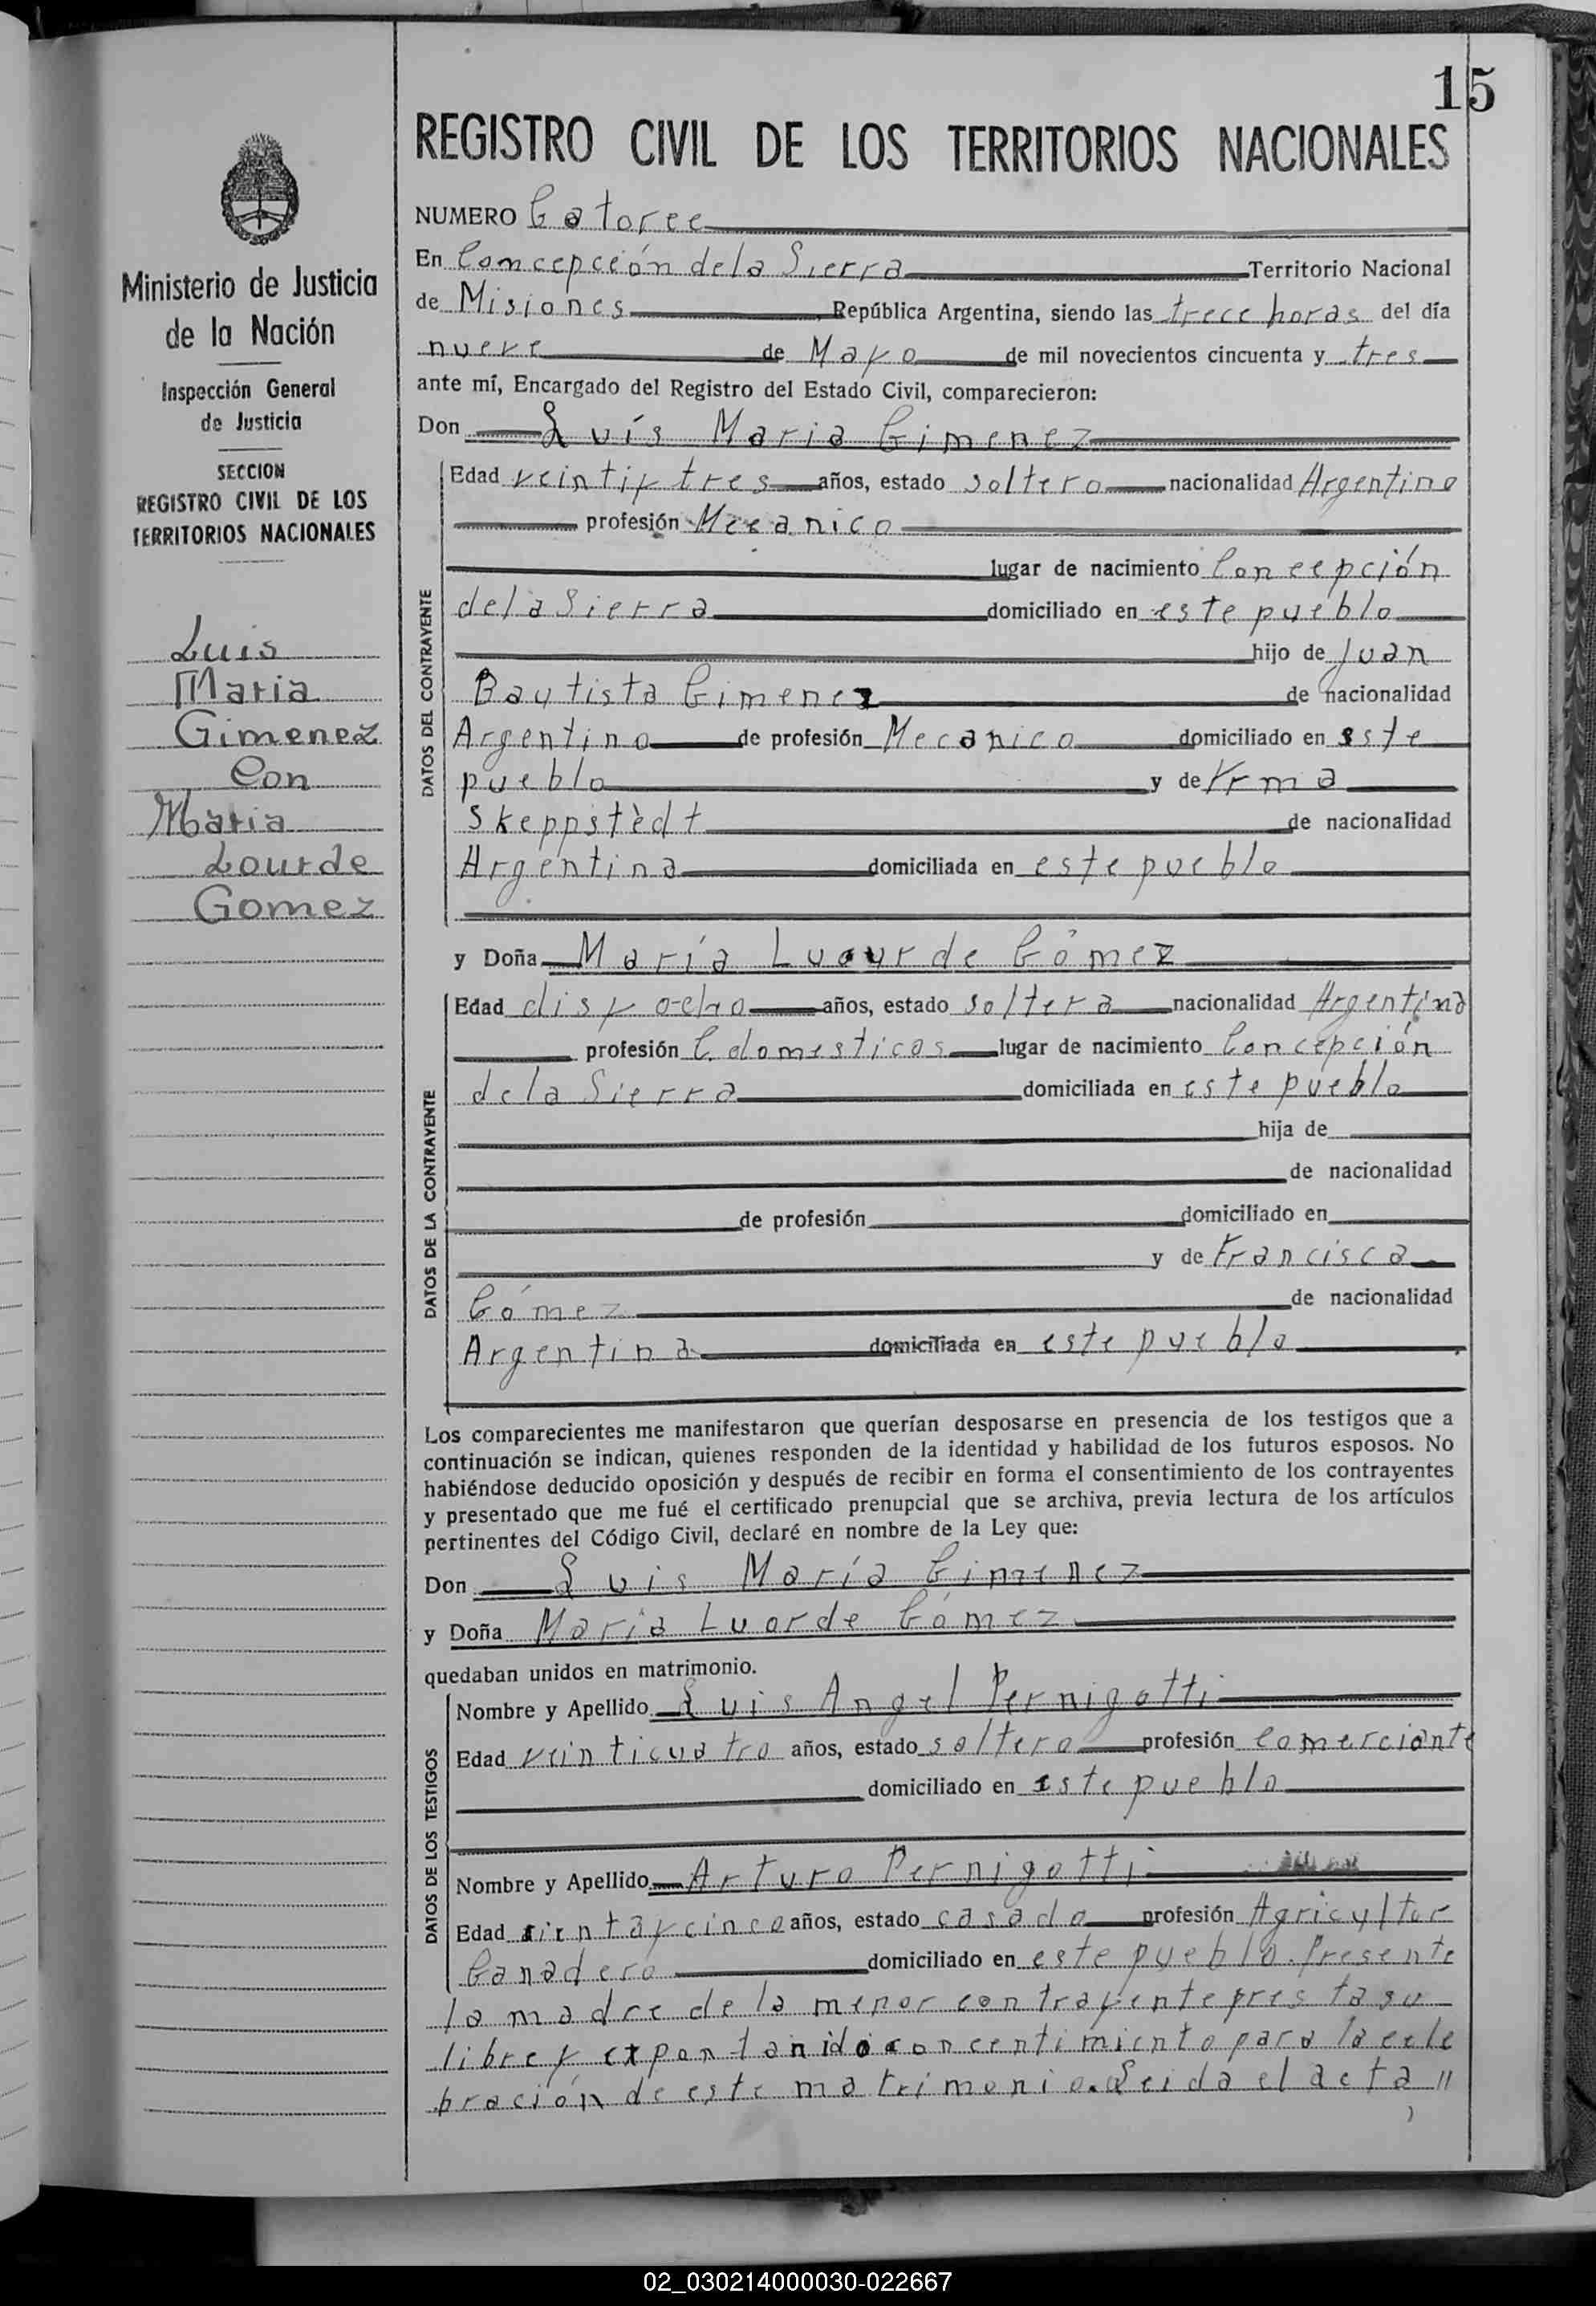 15
REGISTRO CIVIL DE LOS TERRITORIOS NACIONALES
Ministerio de Justicia
de la Nación
Inspección General
de Justicia
SECCION
REGISTRO CIVIL DE LOS
TERRITORIOS NACIONALES
Luis
Maria
Gimenez
Con
Maria
Lourde
Gomez
NUMERO Catorce
En Concepción de la Sierra Territorio Nacional
de Misiones República Argentina, siendo las trece horas del día
nueve de Mayo de mil novecientos cincuenta y tres
ante mí, Encargado del Registro del Estado Civil, comparecieron:
Don Luís Maria Gimenez
DATOS DEL CONTRAYENTE
Edad veintiy tres años, estado soltero nacionalidad Argentino
profesión Mecanico
lugar de nacimiento Concepción
de la Sierra domiciliado en este pueblo
hijo de Juan
Bautista Gimenez de nacionalidad
Argentino de profesión Mecanico domiciliado en este
pueblo y de Yrma
Skeppstèdt de nacionalidad
Argentina domiciliada en este pueblo
y Doña María Luourde Gómez
DATOS DE LA CONTRAYENTE
Edad dis y ocho años, estado soltera nacionalidad Argentina
profesión C. domesticos lugar de nacimiento Concepción
de la Sierra domiciliada en este pueblo
hija de
de nacionalidad
de profesión domiciliado en
y de Francisca
Gómez de nacionalidad
Argentina domiciliada en este pueblo
Los comparecientes me manifestaron que querían desposarse en presencia de los testigos que a
continuación se indican, quienes responden de la identidad y habilidad de los futuros esposos. No
habiéndose deducido oposición y después de recibir en forma el consentimiento de los contrayentes
y presentado que me fué el certificado prenupcial que se archiva, previa lectura de los artículos
pertinentes del Código Civil, declaré en nombre de la Ley que:
Don Luis María Gimenez
y Doña Maria Luorde Gómez
quedaban unidos en matrimonio.
DATOS DE LOS TESTIGOS
Nombre y Apellido Luis Angel Pernigotti
Edad veinticuatro años, estado soltero profesión Comerciante
domiciliado en este pueblo
Nombre y Apellido Arturo Pernigotti
Edad años, estado casado profesión Agricultor
Ganadero domiciliado en este pueblo. Presente
la madre de la menor contrayente presta su
libre y expontanido concentimiento para la cele
bración de este matrimonio. Leida el acta "
02_030214000030-022667